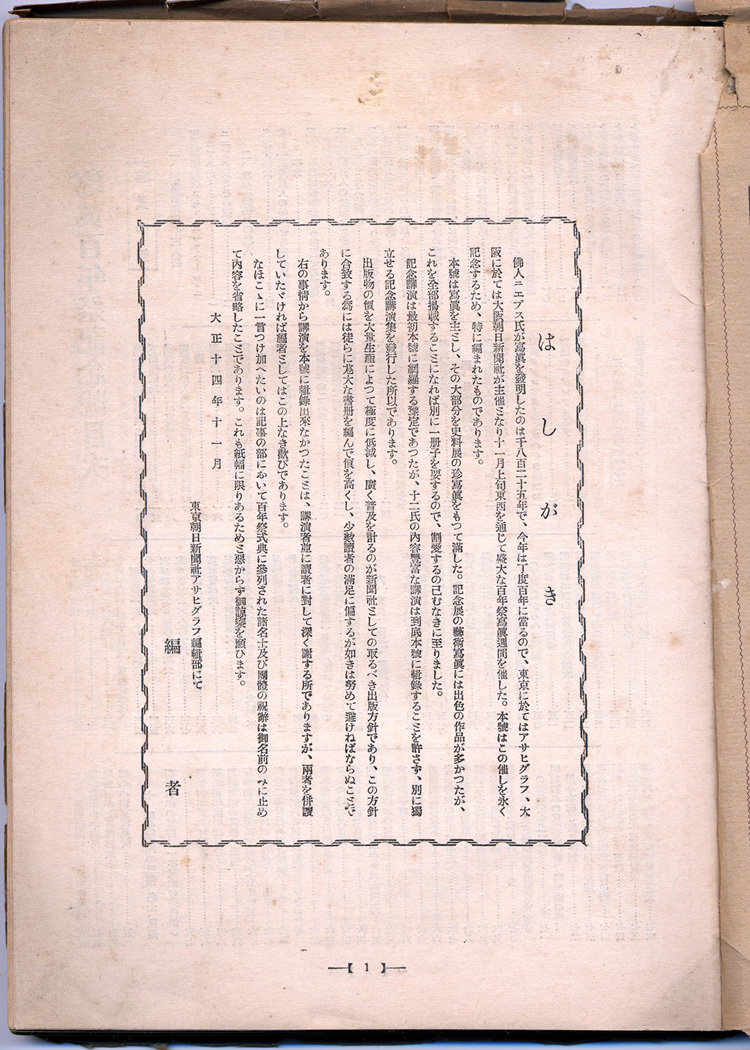 はしがき
佛人ニエプス氏が寫眞を發明したのは千八百二十五年で、今年は丁度百年に當るので、東京に於てはアサヒグラフ、大
阪に於ては大阪朝日新聞社が主催となり十一月上旬東西を通じて盛大な百年祭寫眞週間を催した。本號はこの催しを永く
記念するため、特に編まれたものであります。
本號は寫眞を主とし、その大部分を史料展の珍寫眞をもつて滿した。記念展の藝術寫眞には出色の作品が多かつたが、
これを全部揭載することになれば別に一册子を要するので、割愛するの已むなきに至りました。
記念講演は最初本號に網羅する豫定であつたが、十二氏の内容豐富な講演は到底本號に輯錄することを許さず、別に獨
立せる記念講演集を發行した所以であります。
出版物の價を大量生産によつて極度に低減し、廣く普及を計るのが新聞社としての取るべき出版方針であり、この方針
に合致する爲には徒らに尨大な書册を編んで價を高くし、少數讀者の滿足に偏するが如きは努めて避けねばならぬことで
あります。
右の事情から講演を本號に輯錄出來なかつたことは、講演者並に讀者に對して深く謝する所でありますが、兩者を併讀
していたゞければ編者としてはこの上なき歡びであります。
なほこゝに一言つけ加へたいのは記事の部において百年祭式典に參列された諸名士及び團體の祝辭は御名前のみに止め
て内容を省略したことであります。これも紙幅に限りあるためと惡からず御諒察を願ひます。
大正十四年十一月
東京朝日新聞社アサヒグラフ編輯部にて
編者
【1】